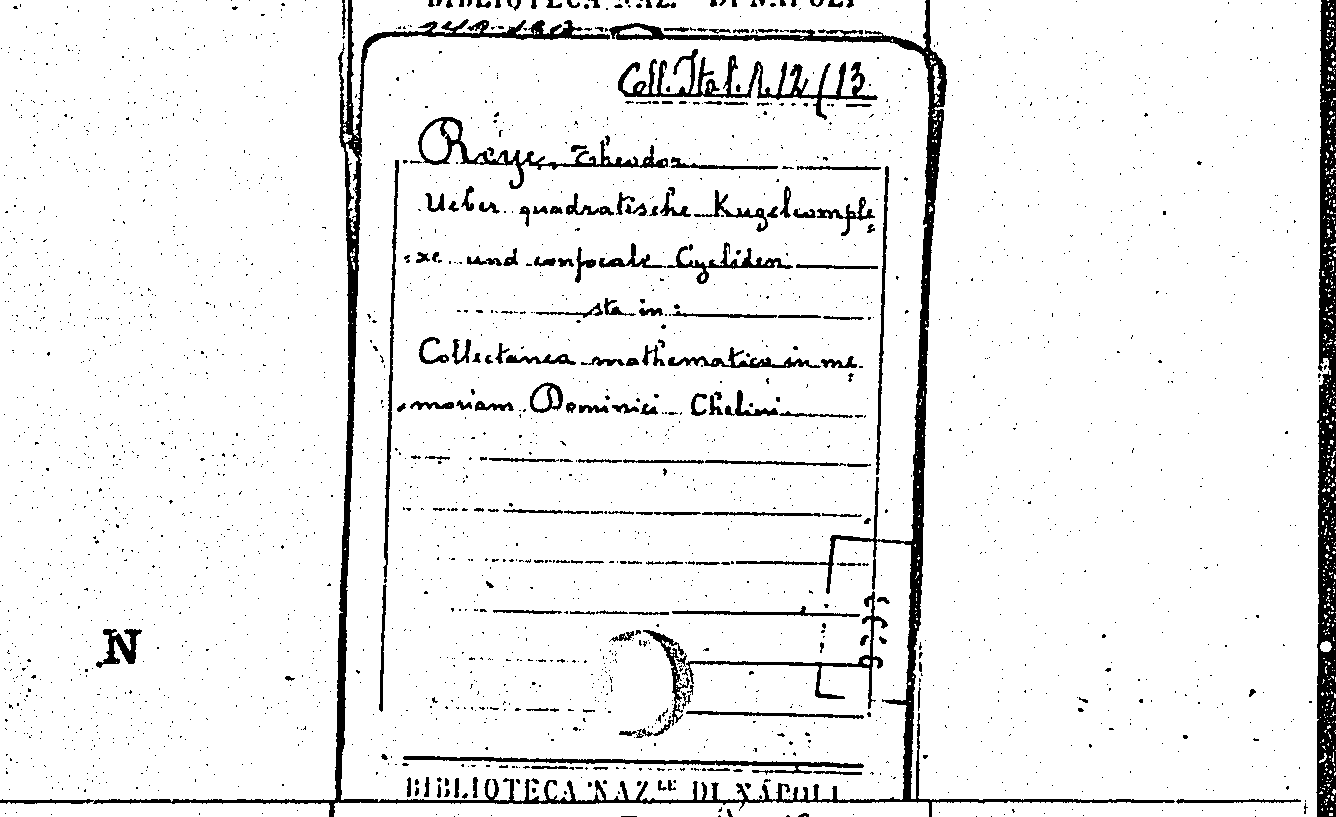 BIBLIOTECA NAZ. DI NAPOLI
Coll. Ital. A. 12/13
Reye, Theodor
Ueber quadratische Kugelcomple=
=xe und confocale Cycliden
sta in:
Collectanea mathematica in me=
=moriam Dominici Chelini
N
BIBLIOTECA NAZ.LE DI NAPOLI